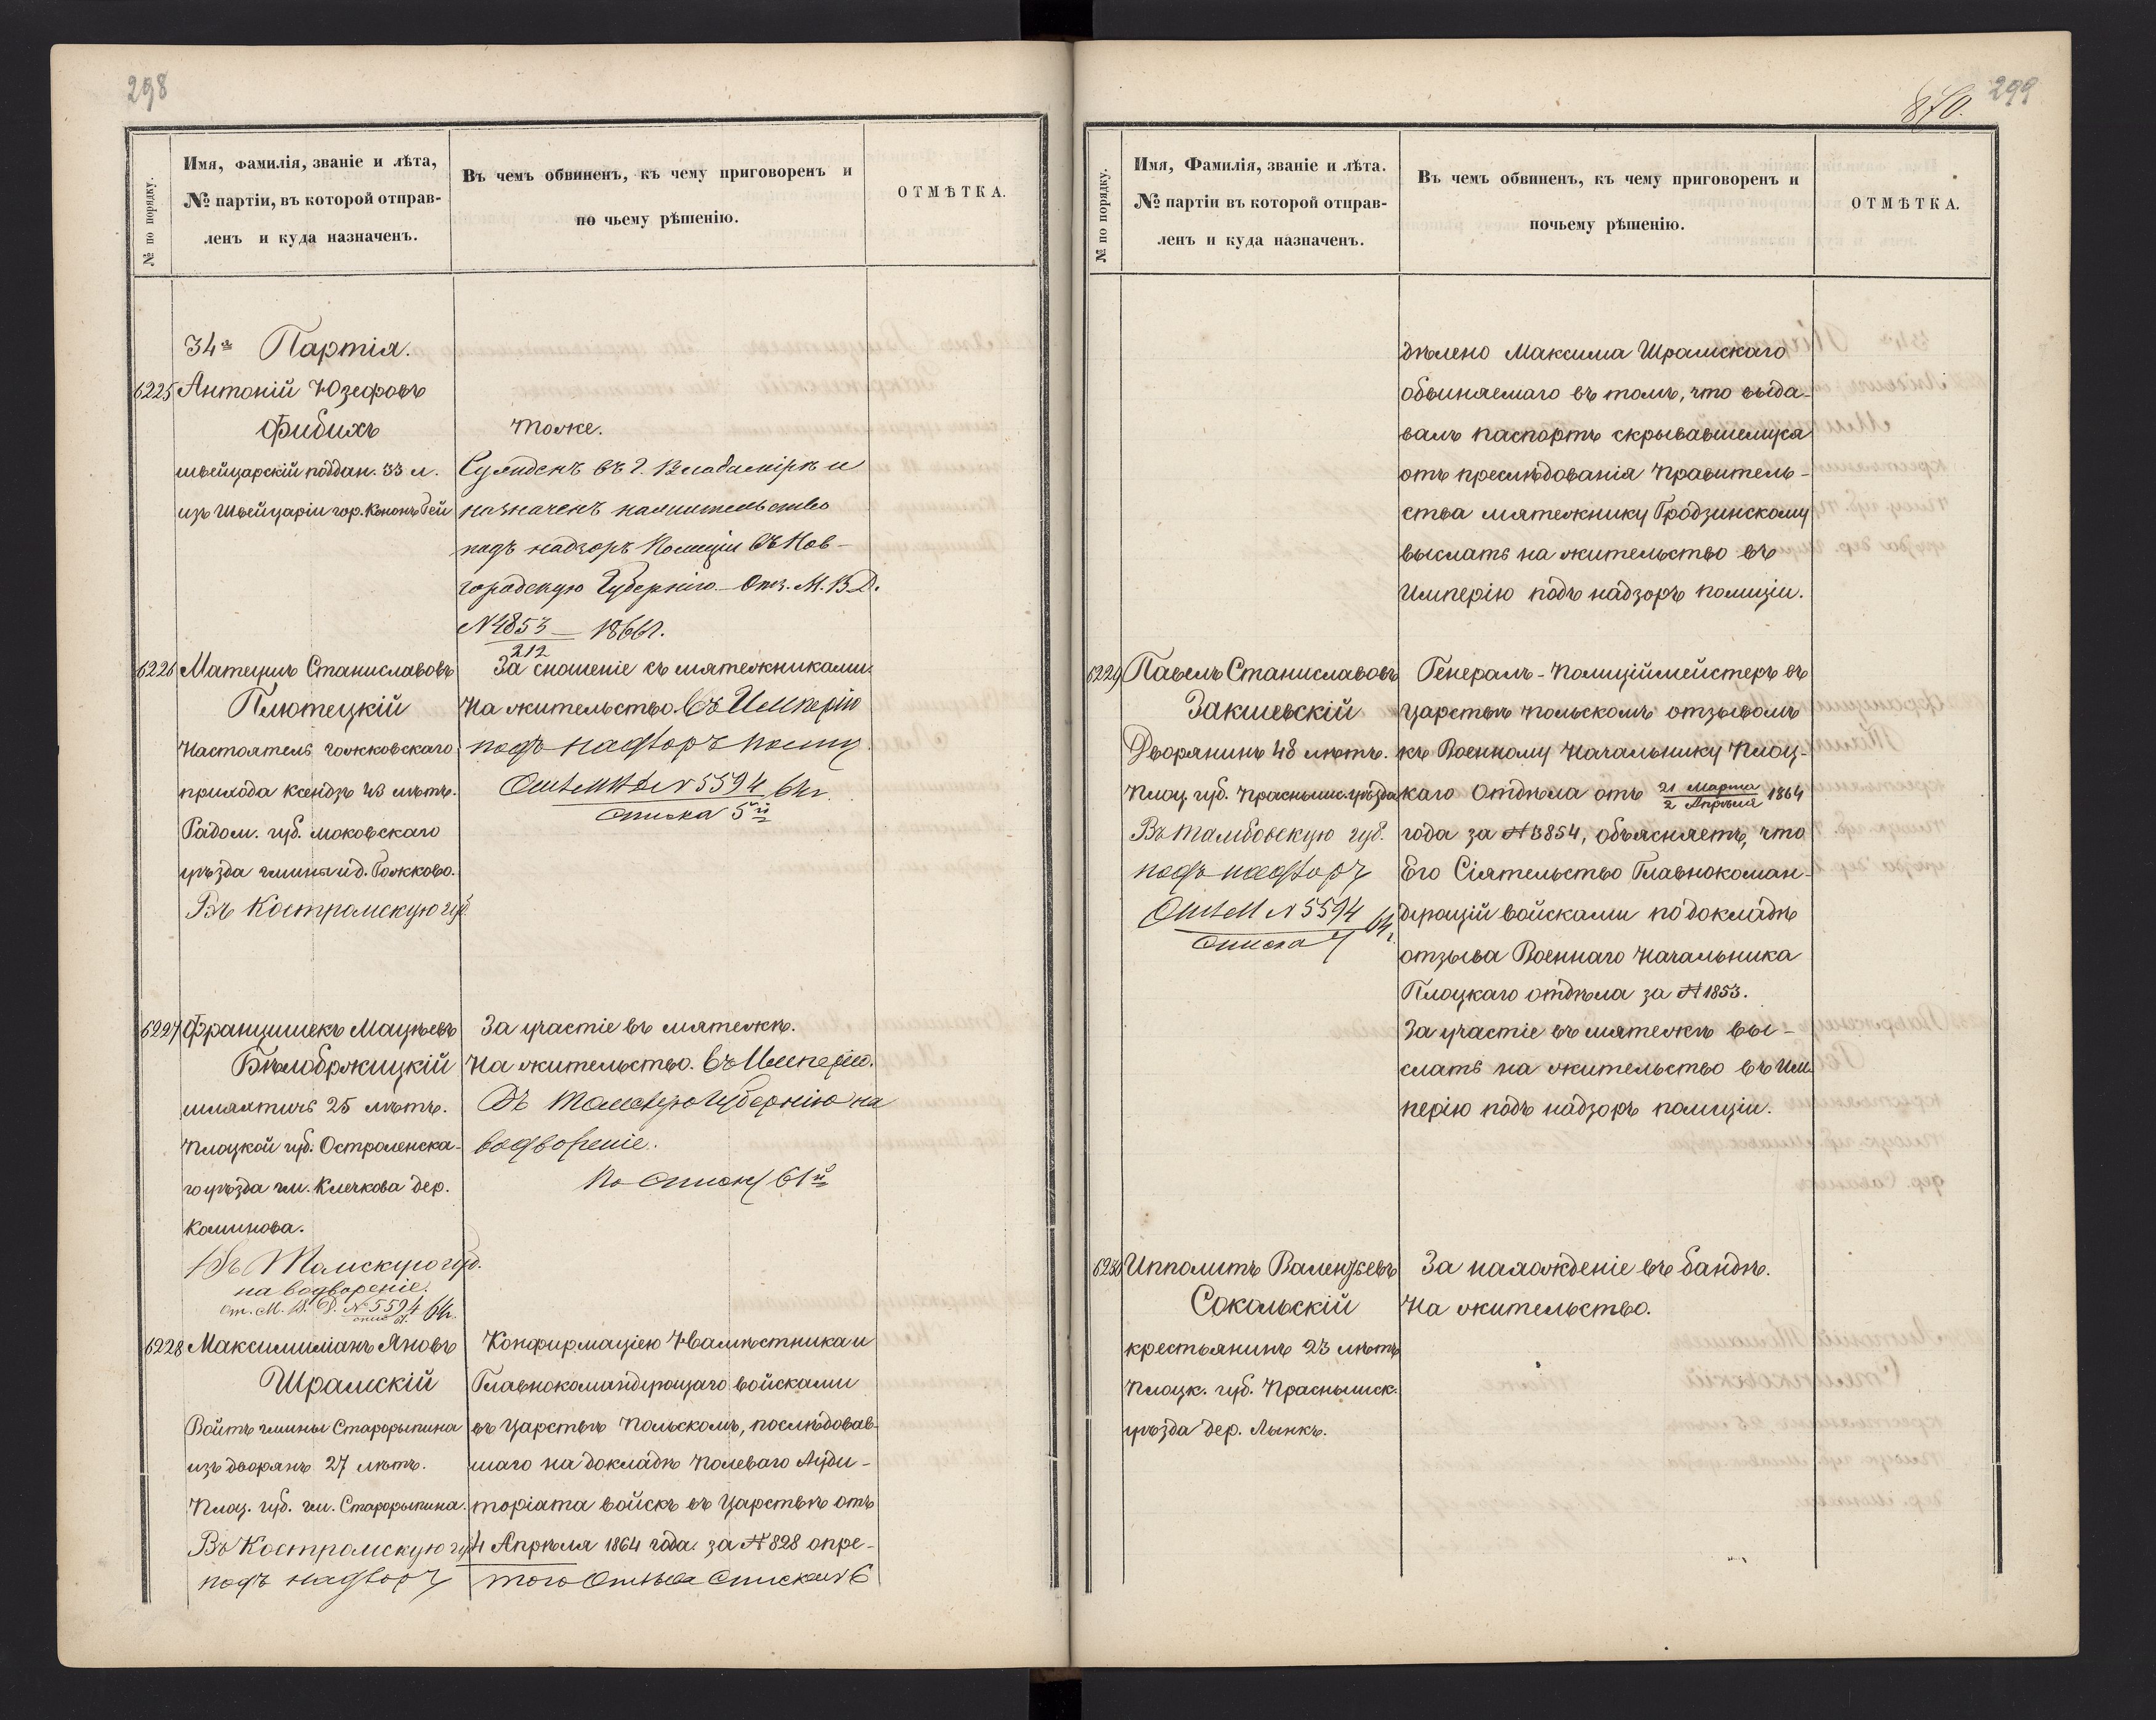 298
№ по порядку.
Имя, фамилія, званіе и лѣта,
№ партіи, въ которой отправ-
ленъ и куда назначенъ.
Въ чемъ обвиненъ, къ чему приговоренъ и
по чьему рѣшенію.
ОТМѢТКА.
34я Партія.
6225 Антоній Юзефовъ
Фибихъ
швейцарскій поддан. 33 л.
изъ Швейцаріи гор.
тоже.
Сужденъ въ г. Владимірѣ и
назначенъ на жительство
подъ надзоръ Полиціи въ Нов-
городскую Губернію. Отз. М.В.Д.
N 4853 — 1866г.
212
6226 Матеушъ Станиславовъ
Плютецкій
Настоятель гожковскаго
прихода ксендзъ 43 лѣтъ.
Радом. губ.
уѣзда гмины и д. Гожково.
Въ Костромскую губ.
За сношеніе съ мятежниками.
На жительство въ Имперію
подъ надзоръ полиц.
N 5594 64г.
списка 5й
6227 Францишекъ Мацѣевъ
Бѣлобржицкій
шляхтичъ 25 лѣтъ.
Плоцкой губ. Остроленска-
го уѣзда гм. Клечкова дер.
Калинова.
Въ Томскую губ.
на водвореніе.
От. М. В. Д. № 5594 64г.
спис 61.
За участіе въ мятежѣ.
На жительство. въ Имперію.
Въ Томскую Губернію на
водвореніе.
По списку 61й
6228 Максимиліанъ Яновъ
Шрамскій
Войтъ гмины Старорыпина
изъ дворянъ 27 лѣтъ.
Плоц. губ. гм. Старорыпина.
Въ Костромскую губ
подъ надзоръ
Конфирмаціею Намѣстника и
Главнокомандующаго войсками
въ Царствѣ Польскомъ, послѣдовав-
шаго на докладѣ Полеваго Ауди-
торіата войскъ въ Царствѣ отъ
4 Апрѣля 1864 года за № 828 опре-
того Отзыва Списка № 6
870.
299
№ по порядку.
Имя, Фамилія, званіе и лѣта.
№ партіи въ которой отправ-
ленъ и куда назначенъ.
Въ чемъ обвиненъ, къ чему приговоренъ и
почьему рѣшенію.
ОТМѢТКА.
дѣлено Максима Шрамскаго
обвиняемаго въ томъ, что выда-
валъ паспортъ скрывавшемуся
отъ преслѣдованія Правитель-
ства мятежнику Гродзинскому
выслать на жительство въ
Имперію подъ надзоръ полиціи.
6229 Павелъ Станиславовъ
Закшевскій
Дворянинъ 48 лѣтъ.
Плоц. губ. Праснышс. уѣзда
Въ Тамбовскую губ.
подъ надзоръ
N 5594 64г.
списка 7
Генералъ-Полиціймейстеръ въ
Царствѣ Польскомъ отзывомъ
къ Военному Начальнику Плоц-
каго Отдѣла отъ 21 Марта / 2 Апрѣля 1864
года за № 3854, объясняетъ, что
Его Сіятельство Главнокоман-
дующій войсками по докладѣ
отзыва Военнаго Начальника
Плоцкаго отдѣла за № 1853.
За участіе въ мятежѣ вы-
слать на жительство въ Им-
перію подъ надзоръ полиціи.
6230 Ипполитъ Валентьевъ
Сокольскій
крестьянинъ 23 лѣтъ
Плоцк. губ. Праснышск.
уѣзда дер. Лынкъ.
За нахожденіе въ бандѣ.
На жительство.